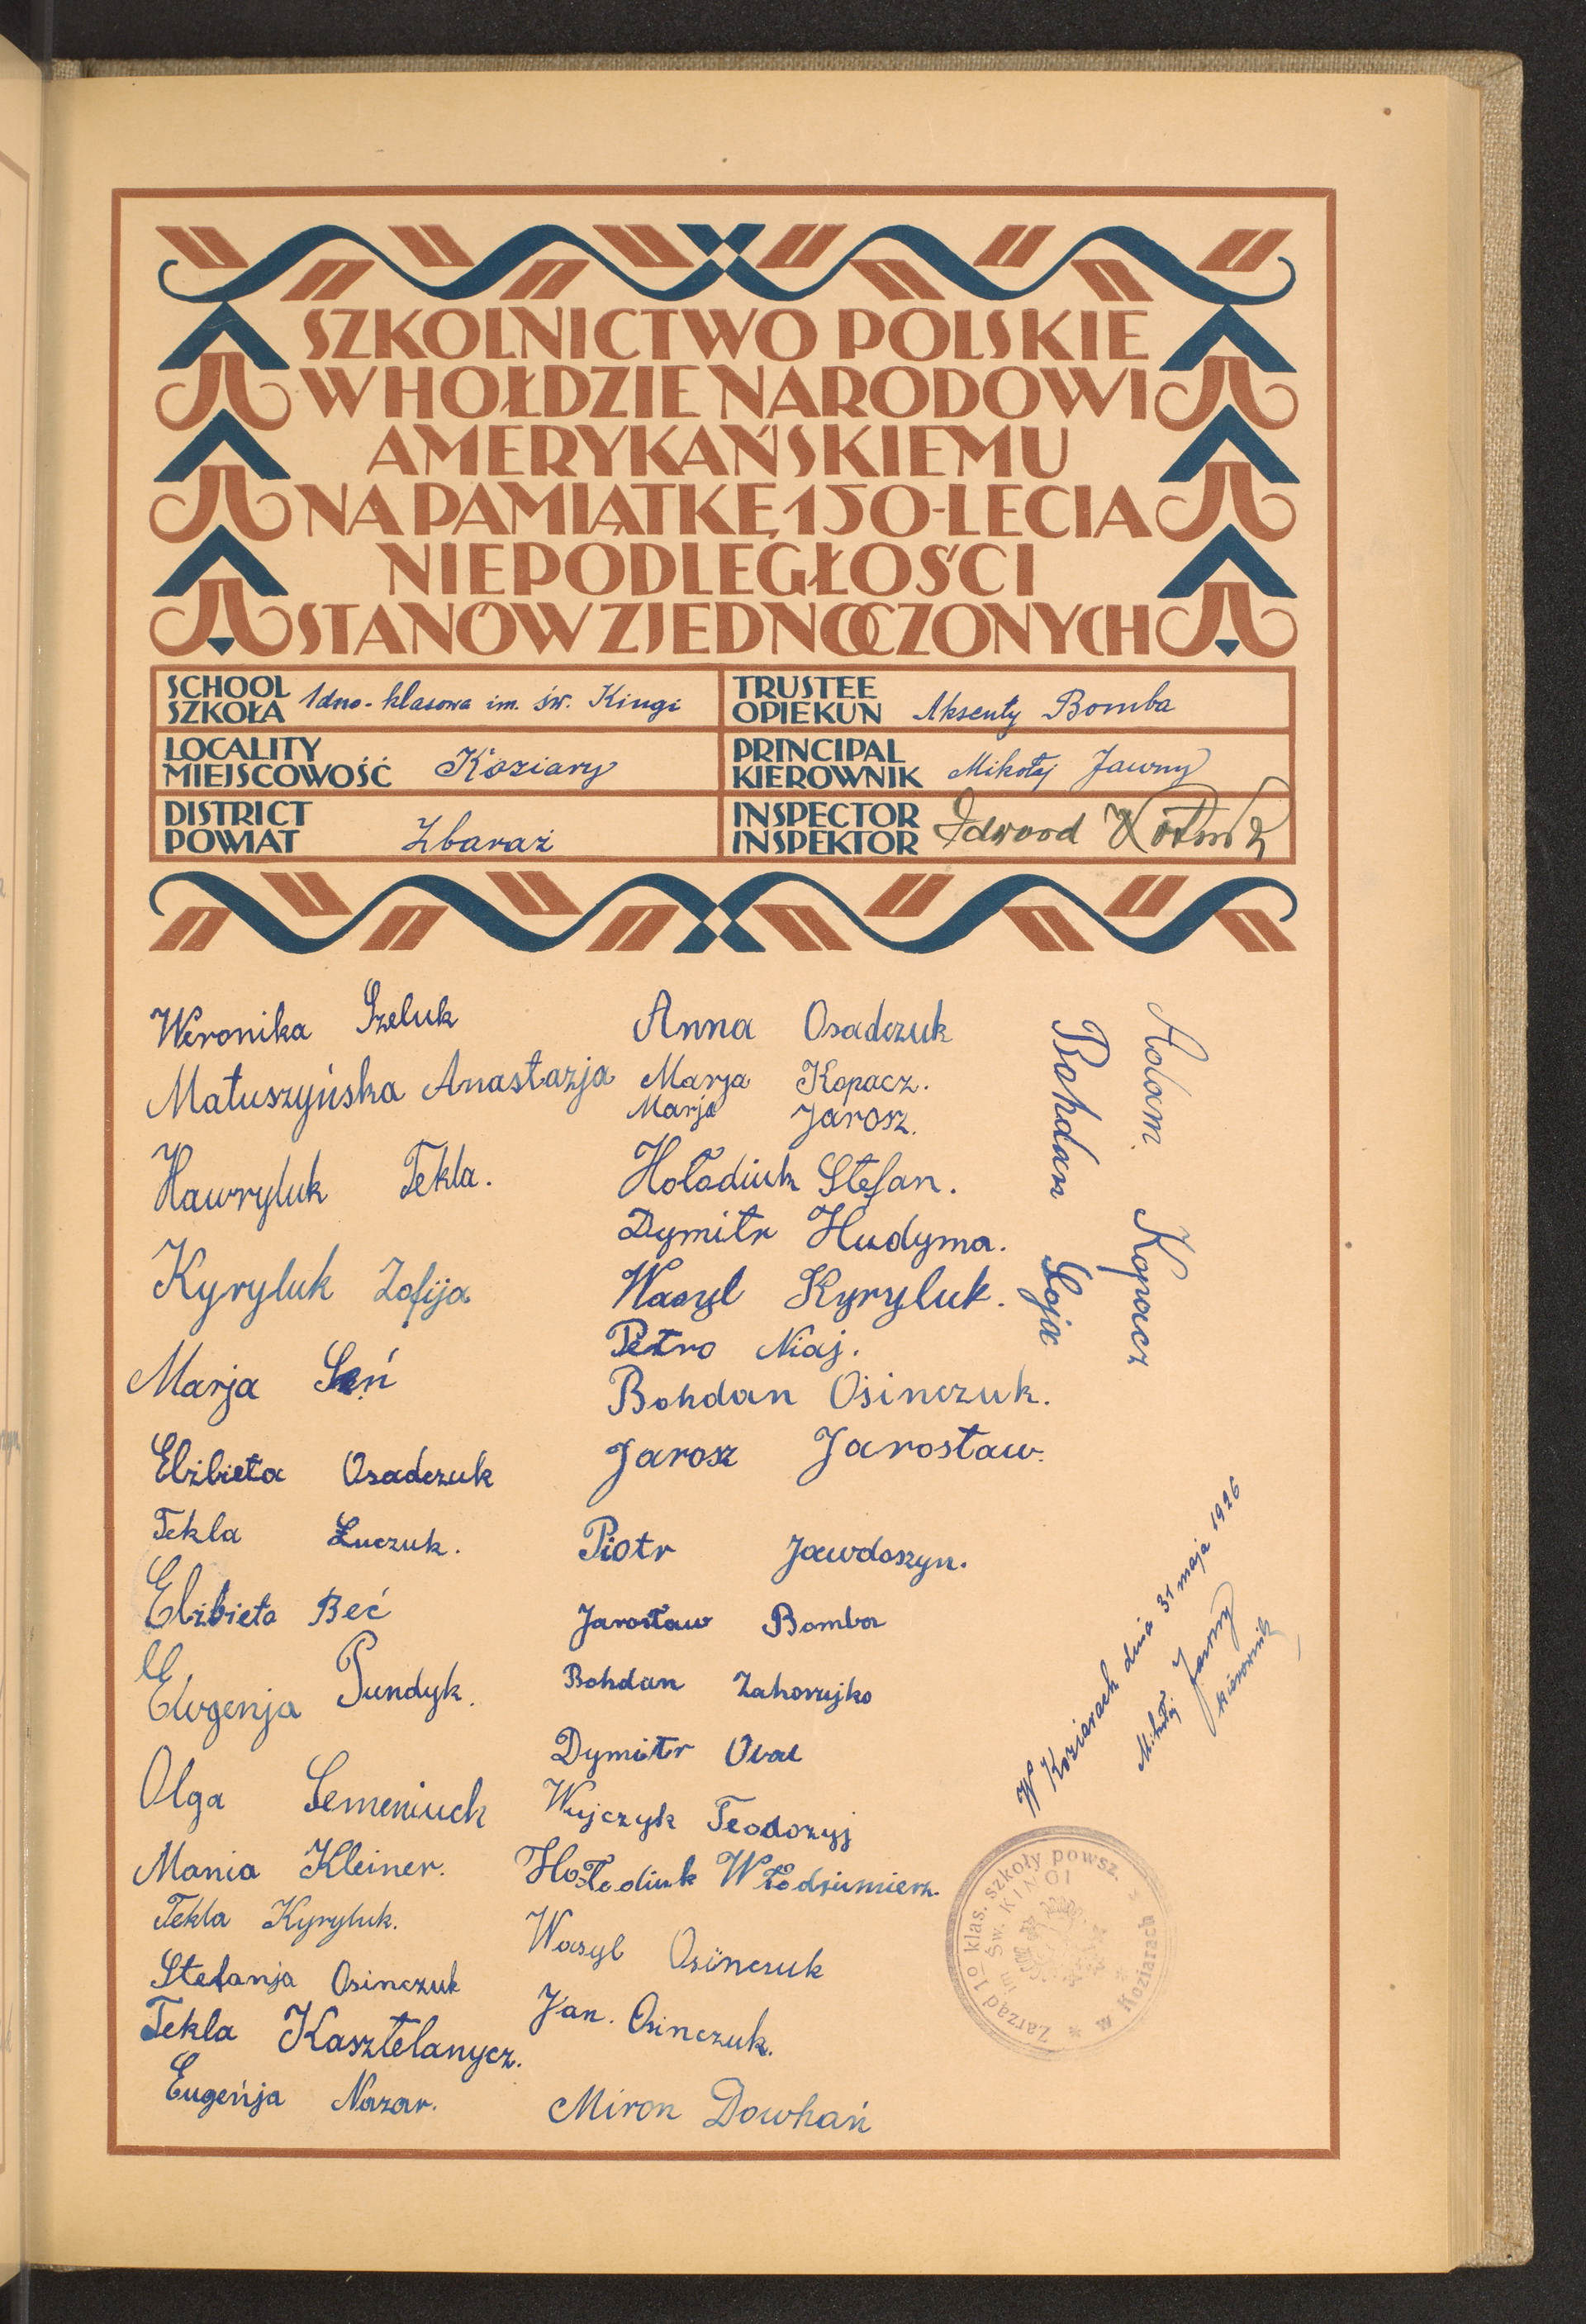 SZKOLNICTWO POLSKIE
W HOŁDZIE NARODOWI
AMERYKAŃSKIEMU
NA PAMIĄTKĘ 150-LECIA
NIEPODLEGŁOŚCI
STANÓW ZJEDNOCZONYCH
SCHOOL
SZKOŁA
1dno-klasowa im. św. Kingi
TRUSTEE
OPIEKUN
Aksenty Bomba
LOCALITY
MIEJSCOWOŚĆ
Koziary
PRINCIPAL
KIEROWNIK
Mikołaj Jawny
DISTRICT
POWIAT
Zbaraż
INSPECTOR
INSPEKTOR
Edward
Weronika Szeluk
Matuszyńska Anastazja
Hawryluk Tekla.
Kyryluk Zofija
Marja Seń
Elżbieta Osadczuk
Tekla Łuczuk.
Elżbieta Beć
Eugenja Pundyk.
Olga Semeniuck
Mania Kleiner.
Tekla Kyryluk.
Stefanja Osinczuk
Tekla Kasztelanycz.
Eugenja Nazar.
Anna Osadczuk
Marja Kopacz.
Marja Jarosz.
Hoładiuk Stefan.
Dymitr Hudyma.
Wasyl Kyryluk.
Petro Niaj.
Bohdan Osinczuk.
Jarosz Jarosław.
Piotr Jawdoszyn.
Jarosław Bomba
Bohdan Zahorujko
Dymitr Oval
Wujczyk Teodozyj
Hołodiuk Włodzimierz.
Wasyl Osinczuk
Jan. Osinczuk.
Miron Dowhań
Adam Kopacz
Bohdan Soja
W Koziarach dnia 31 maja 1926
Mikołaj Jawny
kierownik
Zarząd 1o klas. szkoły powsz.
im Św. KINGI
w Koziarach